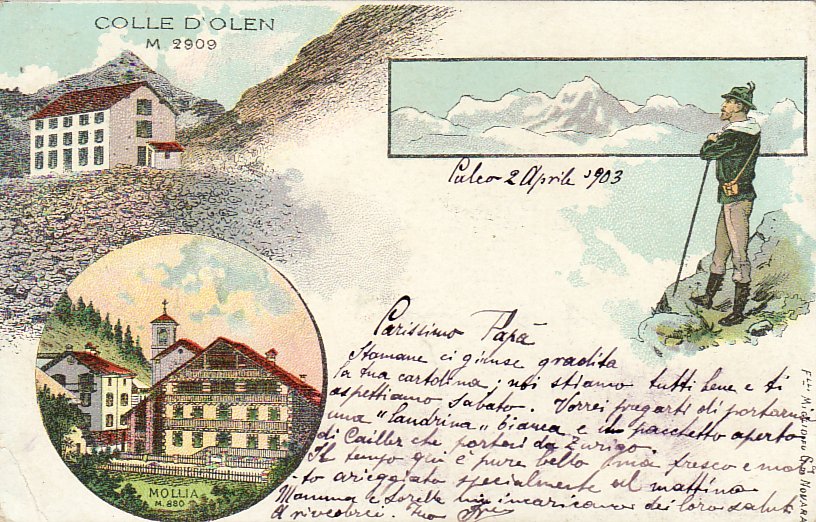 COLLE D'OLEN
M 2909
2 Aprile 1903
Carissimo Papà
Stamane ci giunse gradita
la tua cartolina; noi stiamo tutti bene e ti
aspettiamo sabato. Vorrei pregarti di portarmi
una " " bianca e un pacchetto aperto
di Cailler che porterai da Zurigo.
Il tempo qui è pure bello ma fresco e mol-
to arieggiato specialmente al mattino
Mamma e sorelle mi incaricano dei loro saluti
A rivederci. Tuo
MOLLIA
M. 880
NOVARA